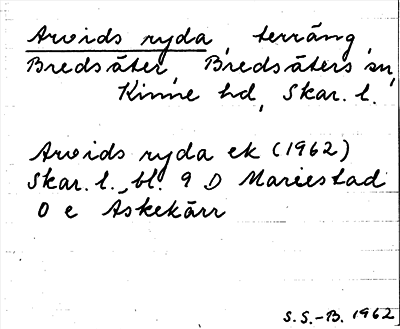 Arvids ryda, terräng,
Bredsäter, Bredsäters sn,
Kinne hd, Skar. l.
Arvids ryda ek (1962)
Skar. l., bl. 9 D Mariestad
O e Askekärr
S.S.-B. 1962